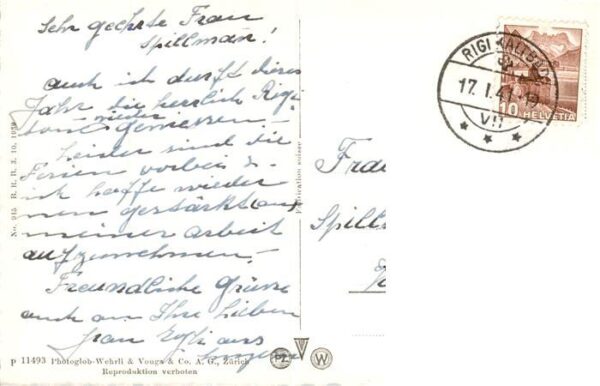 Sehr geehrte Frau
Spillman!
auch ich durfte dieses
Jahr die herrliche Rigi
wieder
geniessen.
Leider sind die
Ferien vorbei &
ich hoffe wieder
gestärkt
meiner arbeit
aufzunehmen.
Freundliche Grüsse
auch an Ihre lieben
Frau Egli aus
No. 945 R. R. R. 3. 10. 1939
Fabrication suisse
P 11493 Photoglob-Wehrli & Vouga & Co. A. G., Zürich
Reproduktion verboten
PZ
W
Frau
Spill
RIGI KALTBAD
17. I. 41
VII
10 HELVETIA